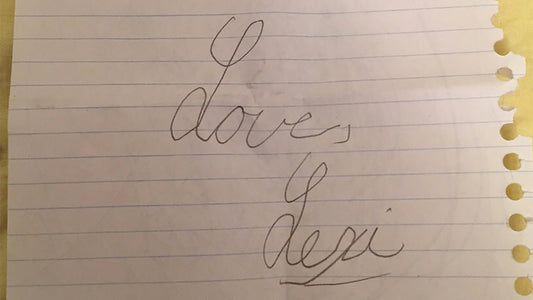 Love,
Lexi